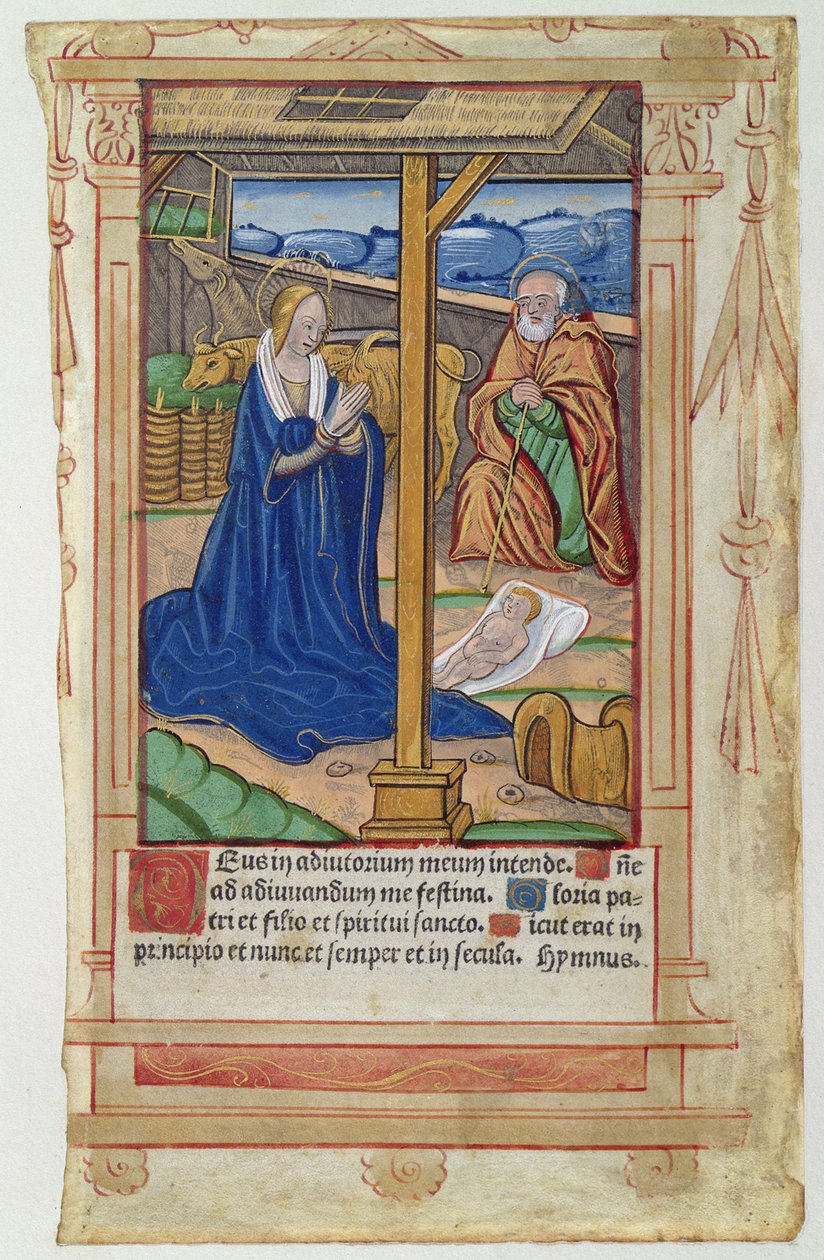 DEus in adiutorium meum intende. Dñe
ad adiuuandum me festina. Gloria pa-
tri et filio et spiritui sancto. Sicut erat in
principio et nunc et semper et in secula. Hymnus.